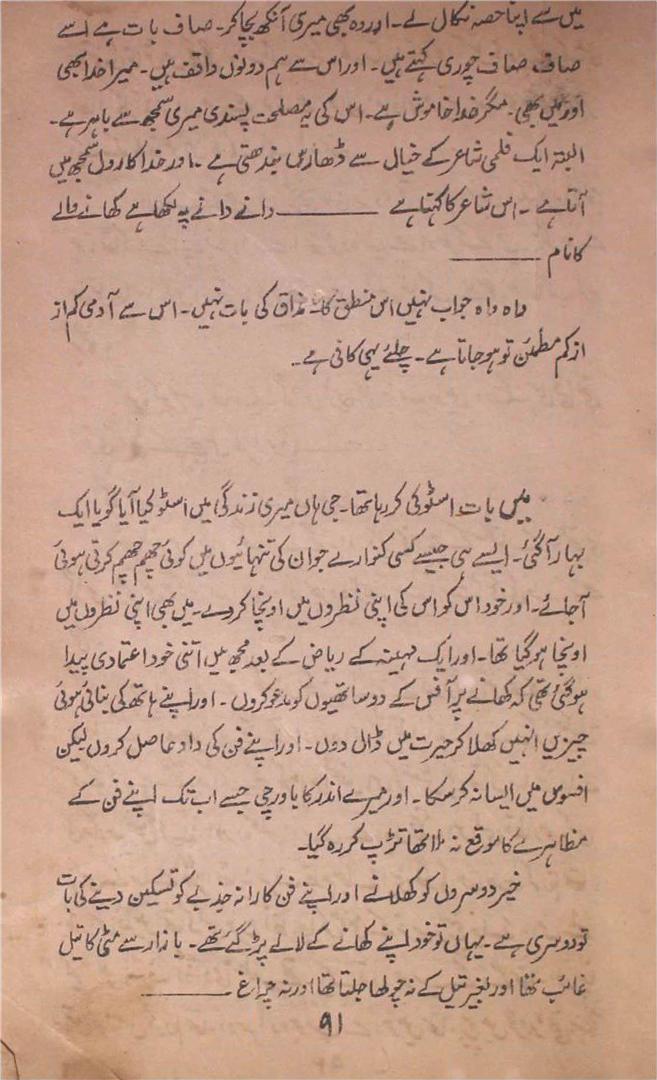 میں سے اپنا حصہ نکال لے۔ اور وہ بھی میری آنکھ بچا کر۔ صاف بات ہے اسے
صاف صاف چوری کہتے ہیں۔ اور اس سے ہم دونوں واقف ہیں۔ میرا خدا بھی
اور میں بھی۔ مگر خدا خاموش ہے۔ اس کی یہ مصلحت پسندی میری سمجھ سے باہر ہے۔
البتہ ایک فلمی شاعر کے خیال سے ڈھارس بندھتی ہے۔ اور خدا کا رول سمجھ میں
آتا ہے۔ اس شاعر کا کہنا ہے ——— دانے دانے پہ لکھا ہے کھانے والے
کا نام ———
واہ واہ جواب نہیں اس منطق کا۔ مذاق کی بات نہیں۔ اس سے آدمی کم از
از کم مطمئن تو ہو جاتا ہے۔ چلئے یہی کافی ہے۔
میں بات اسٹو کی کر رہا تھا۔ جی ہاں میری زندگی میں اسٹو کیا آیا گویا ایک
بہار آ گئی۔ ایسے ہی جیسے کسی کنوارے جوان کی تنہائیوں میں کوئی چھم چھم کرتی ہوئی
آ جائے۔ اور خود اس کو اس کی اپنی نظروں میں اونچا کر دے۔ میں بھی اپنی نظروں میں
اونچا ہو گیا تھا۔ اور ایک مہینہ کے ریاض کے بعد مجھ میں اتنی خود اعتمادی پیدا
ہو گئی تھی کہ کھانے پر آفس کے دو ساتھیوں کو مدعو کروں۔ اور اپنے ہاتھ کی بنائی ہوئی
چیزیں انہیں کھلا کر حیرت میں ڈال دوں۔ اور اپنے فن کی داد حاصل کروں لیکن
افسوس میں ایسا نہ کر سکا۔ اور میرے اندر کا باورچی جسے اب تک اپنے فن کے
مظاہرے کا موقع نہ ملا تھا تڑپ کر رہ گیا۔
خیر دوسروں کو کھلانے اور اپنے فن کارانہ جذبے کو تسکین دینے کی بات
تو دوسری ہے۔ یہاں تو خود اپنے کھانے کے لالے پڑ گئے تھے۔ بازار سے مٹی کا تیل
غائب تھا اور بغیر تیل کے نہ چولھا جلتا تھا اور نہ چراغ ———
۹۱